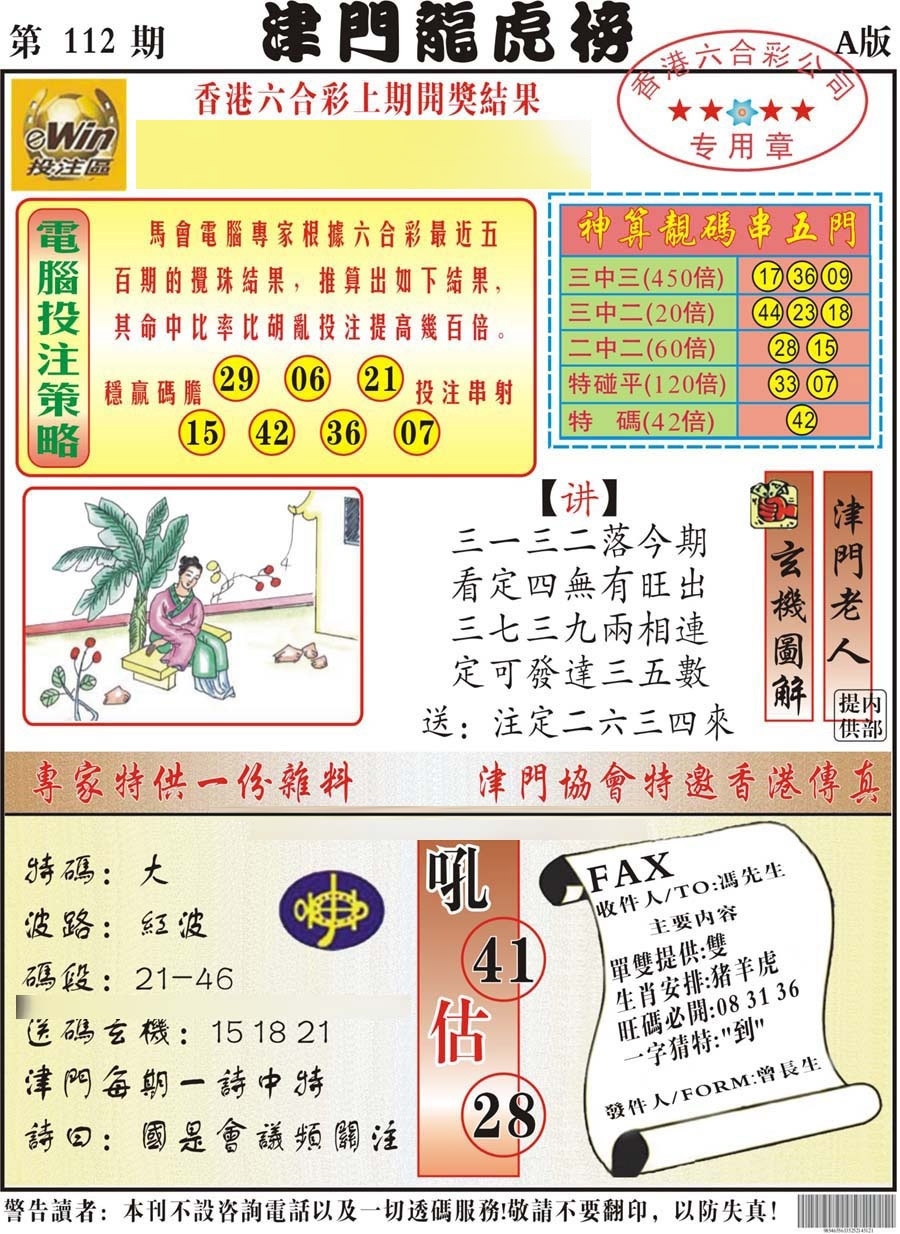 第 112 期
津門龍虎榜
A版
香港六合彩公司
专用章
eWin
投注區
香港六合彩上期開獎結果
電腦投注策略
馬會電腦專家根據六合彩最近五
百期的攪珠結果，推算出如下結果，
其命中比率比胡亂投注提高幾百倍。
穩贏碼膽 29 06 21 投注串射
15 42 36 07
神算靚碼串五門
三中三(450倍) 17 36 09
三中二(20倍) 44 23 18
二中二(60倍) 28 15
特碰平(120倍) 33 07
特 碼(42倍) 42
【讲】
三一三二落今期
看定四無有旺出
三七三九兩相連
定可發達三五數
送：注定二六三四來
玄機圖解
津門老人
內部提供
專家特供一份雜料
津門協會特邀香港傳真
特碼：大
波路：紅波
碼段：21-46
送碼玄機：15 18 21
津門每期一詩中特
詩曰：國是會議頻關注
吼
41
估
28
FAX
收件人/TO:馮先生
主要內容
單雙提供:雙
生肖安排:猪羊虎
旺碼必開:08 31 36
一字猜特:"到"
發件人/FORM:曾長生
警告讀者：本刊不設咨詢電話以及一切透碼服務!敬請不要翻印，以防失真！